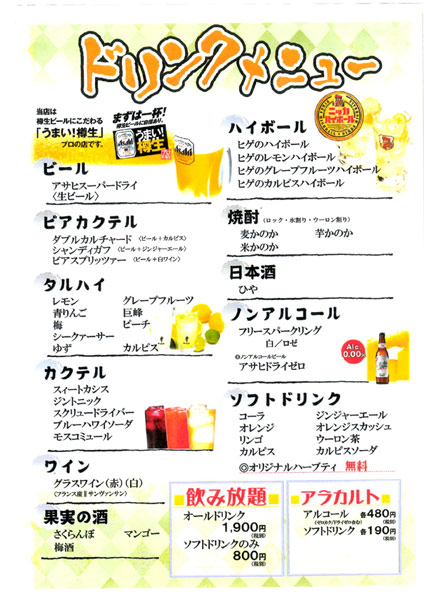 ドリンクメニュー
当店は
樽生ビールにこだわる
「うまい!樽生」
プロの店です。
まずは一杯!
樽生ビールに自信あり。
Asahi
うまい!
樽生
Asahi
ビール
アサヒスーパードライ
〈生ビール〉
ビアカクテル
ダブルカルチャード (ビール+カルピス)
シャンディガフ (ビール+ジンジャーエール)
ビアスプリッツァー (ビール+白ワイン)
タルハイ
レモン グレープフルーツ
青りんご 巨峰
梅 ピーチ
シークァーサー
ゆず カルピス
カクテル
スィートカシス
ジントニック
スクリュードライバー
ブルーハワイソーダ
モスコミュール
ワイン
グラスワイン(赤)(白)
(フランス産‖サンヴァンサン)
果実の酒
さくらんぼ マンゴー
梅酒
ニッカ
ハイボール
ハイボール
ヒゲのハイボール
ヒゲのレモンハイボール
ヒゲのグレープフルーツハイボール
ヒゲのカルピスハイボール
焼酎 (ロック・水割り・ウーロン割り)
麦かのか 芋かのか
米かのか
日本酒
ひや
ノンアルコール
フリースパークリング
白/ロゼ
◎ノンアルコールビール
アサヒドライゼロ
Alc.
0.00%
ソフトドリンク
コーラ ジンジャーエール
オレンジ オレンジスカッシュ
リンゴ ウーロン茶
カルピス カルピスソーダ
◎オリジナルハーブティ 無料
飲み放題
オールドリンク
1,900円
(税別)
ソフトドリンクのみ
800円
(税別)
アラカルト
アルコール 各480円
(ゼロカク/ドライゼロ含む) (税別)
ソフトドリンク 各190円
(税別)